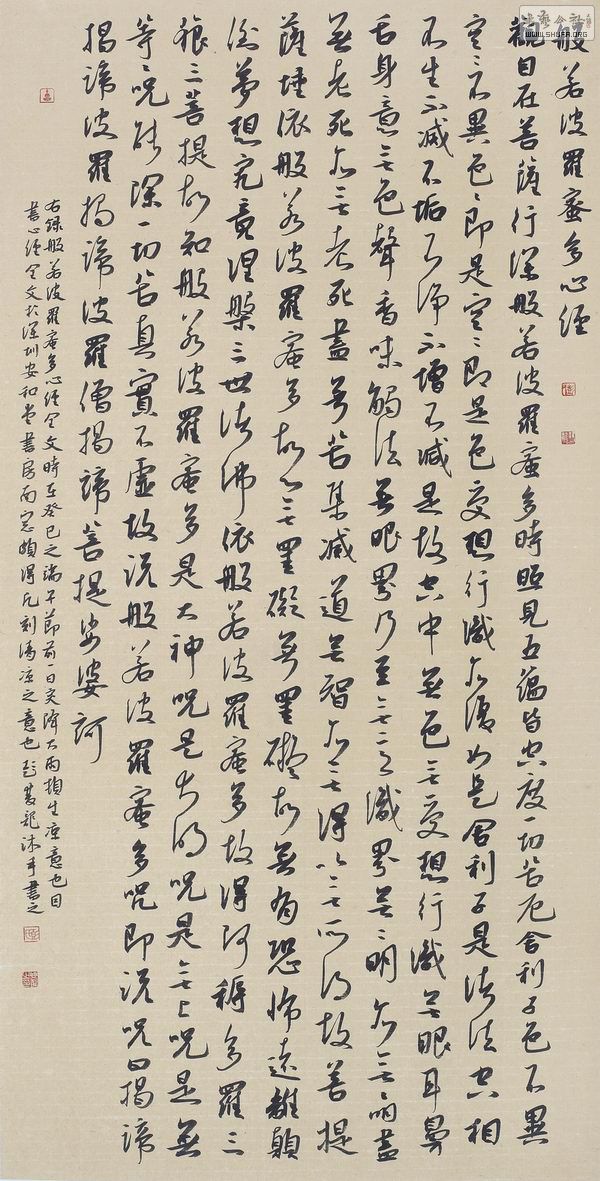 般若波羅蜜多心經
觀自在菩薩行深般若波羅蜜多時照見五蘊皆空度一切苦厄舍利子色不異
空空不異色色即是空空即是色受想行識亦復如是舍利子是諸法空相
不生不滅不垢不淨不增不減是故空中無色無受想行識無眼耳鼻
舌身意無色聲香味觸法無眼界乃至無意識界無無明亦無無明盡
無老死亦無老死盡無苦集滅道無智亦無得以無所得故菩提
薩埵依般若波羅蜜多故心無罣礙無罣礙故無有恐怖遠離顛
倒夢想究竟涅槃三世諸佛依般若波羅蜜多故得阿耨多羅三
藐三菩提故知般若波羅蜜多是大神咒是大明咒是無上咒是無
等等咒能除一切苦真實不虛故說般若波羅蜜多咒即說咒曰揭諦
揭諦波羅揭諦波羅僧揭諦菩提娑婆訶
右錄般若波羅蜜多心經全文時在癸巳之端午節前一日突降大雨頓生涼意也因
書心經全文於深圳安和堂書房南窗頗得片刻清涼之意也彭雙龍沐手書之
WWW.SHUFA.ORG